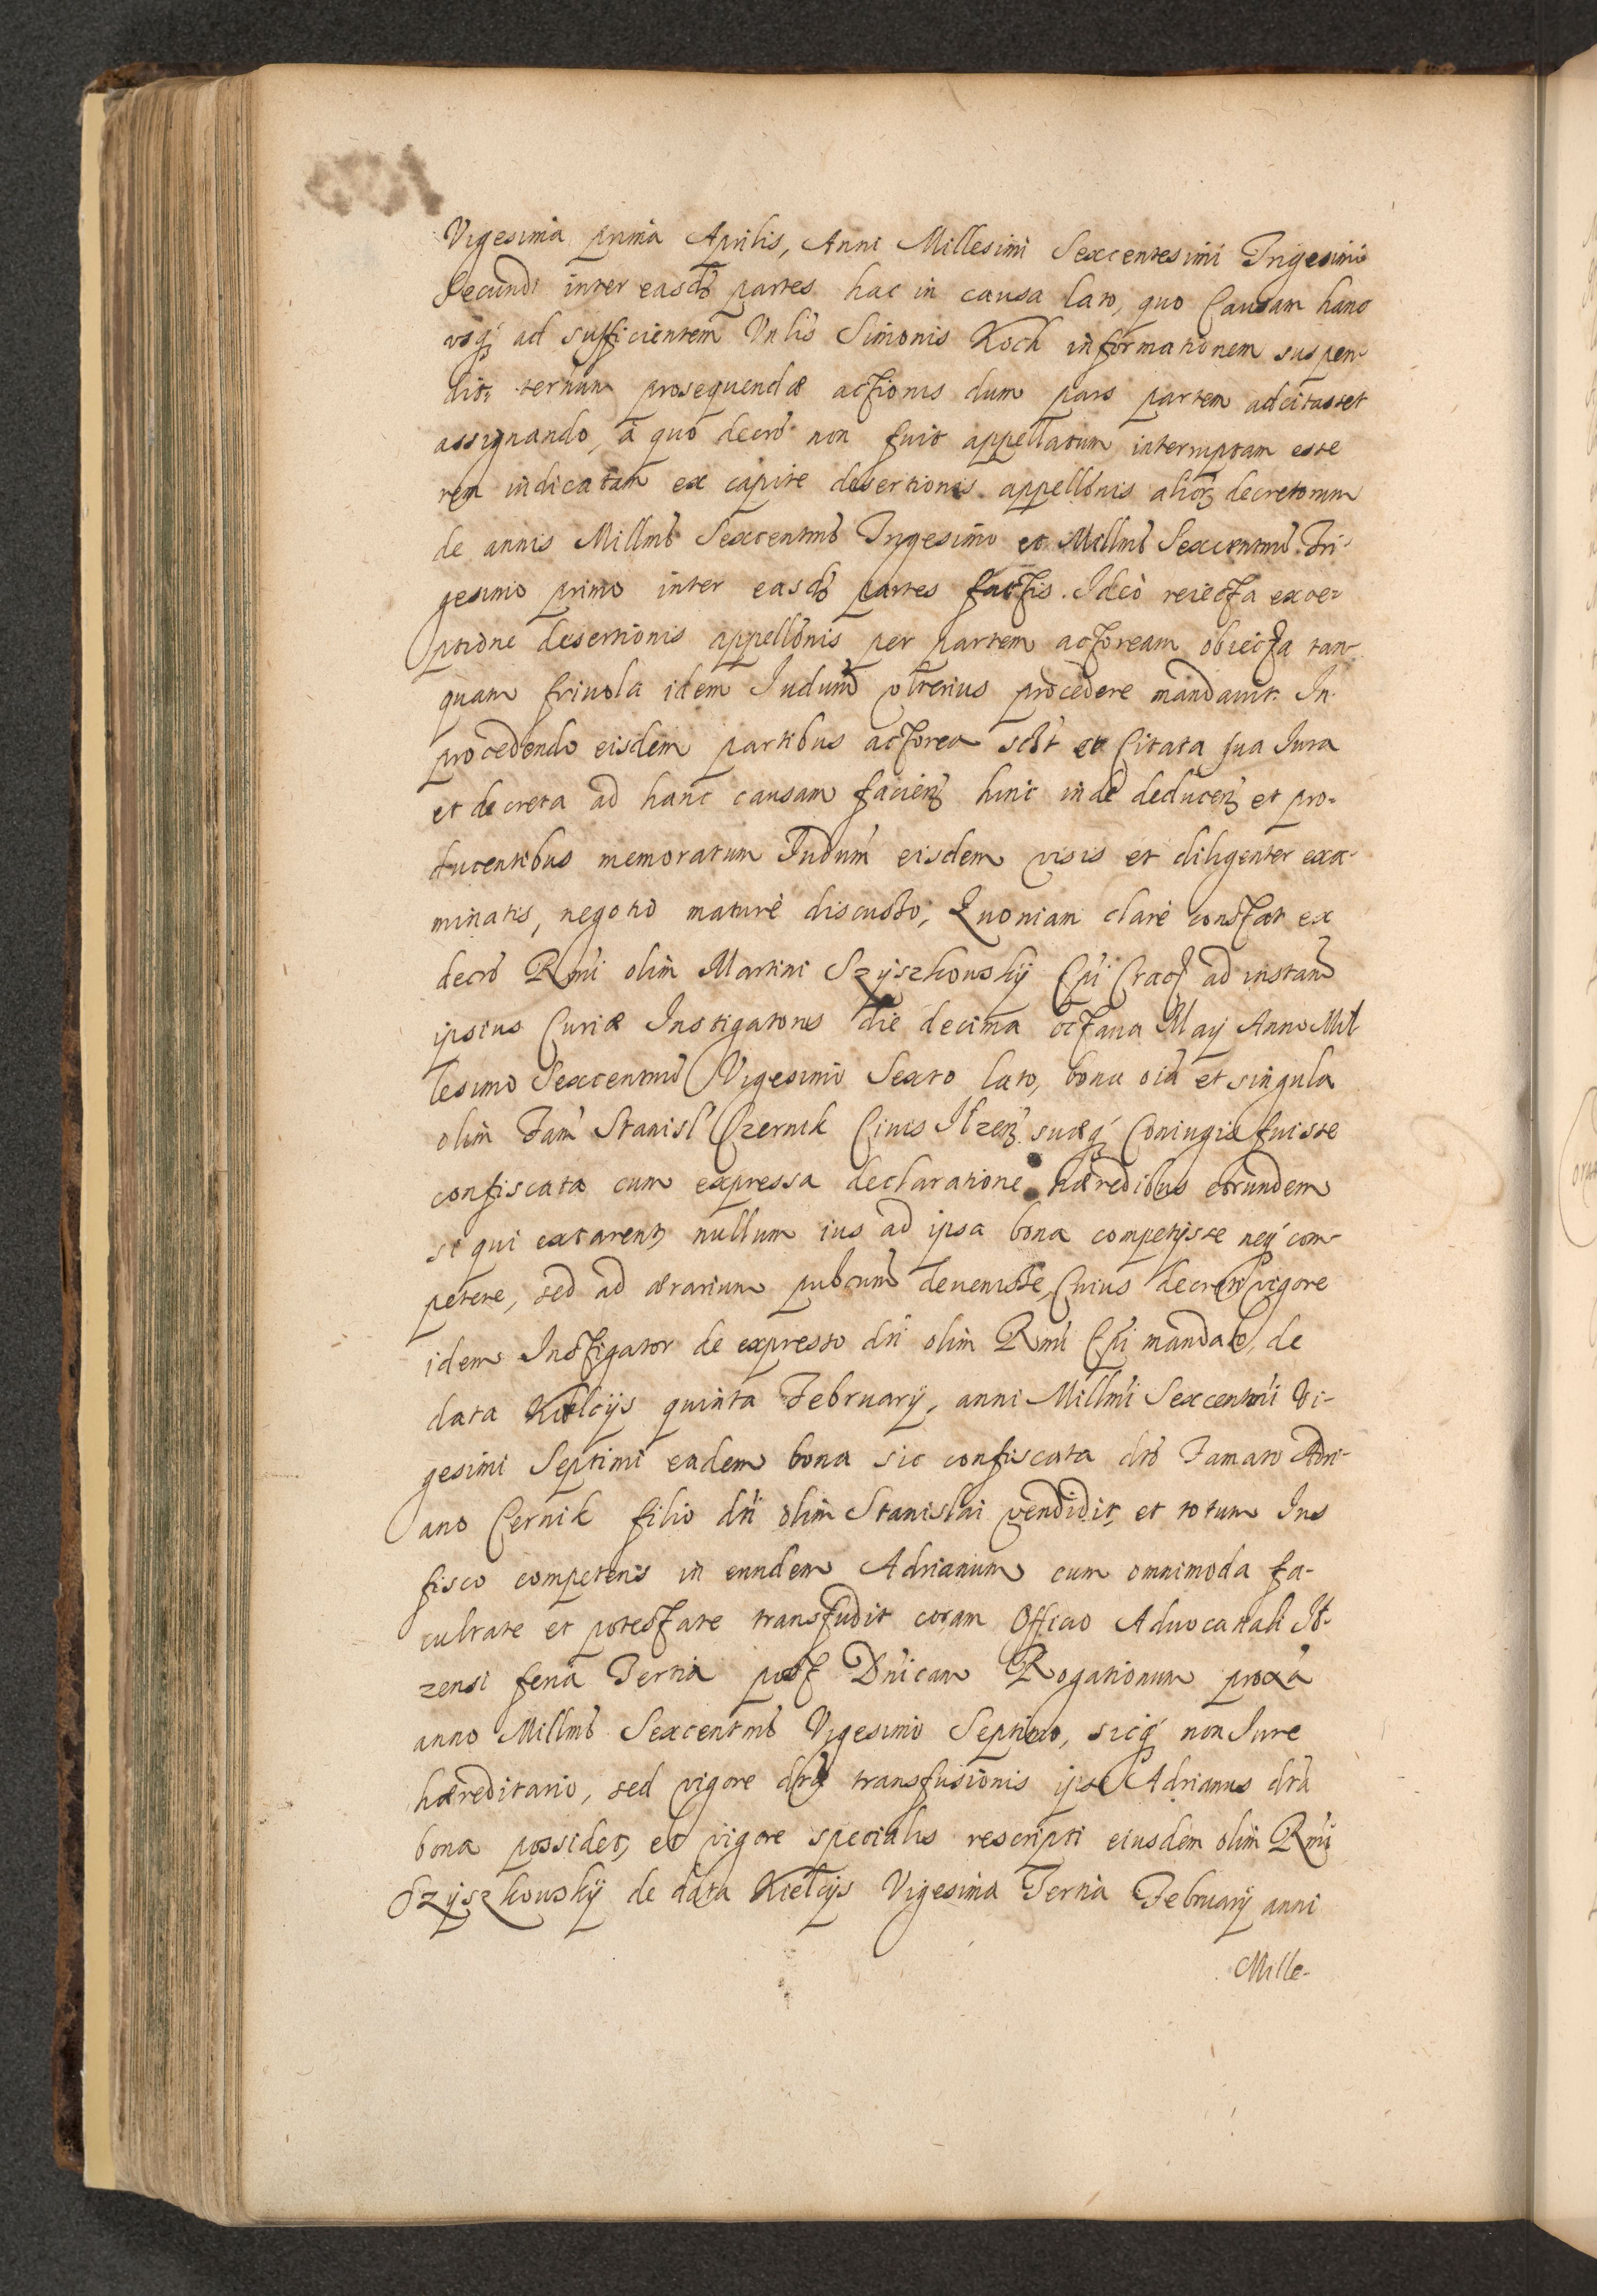 Vigesima prima Aprilis, Anni Millesimi Sexcentesimi Trigesimi
Secundi inter easdẽ partes hac in causa lato, quo Causam hanc
vsq́ ad sufficientem Vnlis Simonis Koch informationem suspen-
dit, termin prosequendæ actionis dum pars partem adcitasset
assignando, à quo decrõ non fuit appellatum interruptam esse
rem iudicatam ex capite desertionis appellõnis aliorꝫ decretorum
de annis Millmõ Sexcentmõ Trigesimo et Millmõ Sexcentmõ Tri-
gesimo primo inter easdẽ partes factis. Ideò reiecta exce-
ptione desertionis appellõnis per partem actoream obiecta tan-
quam friuola idem Iudium vlterius procedere mandauit. In
procedendo eisdem partibus actorea sclt et Citata sua Iura
et decreta ad hanc causam facienꝫ hinc inde deducenꝫ et pro-
ducentibus memoratum Iudium eisdem visis et diligenter exa-
minatis, negotio maturè discusso, Quoniam clarè constat ex
decrõ Rmi olim Martini Szyszkowskÿ Epi Crac̃ ad instañ
ipsius Curiæ Instigatoris die decima octaua Maij Anno Mil-
lesimo Sexcentmõ Vigesimo Sexto lato, bona oĩa et singula
olim Fam̃ Stanisl̃ Czernik Ciuis Ilzenꝫ suæq́ Coniugis fuisse
confiscata cum expressa declaratione hæredibus eorundem
si qui extarent, nullum ius ad ipsa bona competijsse neq́ com-
petere, sed ad ærarium publicum deuenisse, Cuius decreti vigore
idem Instigator de expresso dti olim Rmi Epi mandato, de
data Kielcijs quinta Februarij, anni Millmi Sexcentmi Vi-
gesimi Septimi eadem bona sic confiscata dtõ Famato Adri-
ano Cernik filio dti olim Stanislai vendidit, et totum Ius
fisco competens in eundem Adrianum cum omnimoda fa-
cultate et potestate transfudit coram Officio Aduocatiali Il-
zensi feria Tertia post Dnicam Rogationum proxã
anno Millmõ Sexcentmõ Vigesimo Septimo, sicq́ non Iure
hæreditario, sed vigore dtæ transfusionis ipse Adrianus dtã
bona possidet, et vigore specialis rescripti eiusdem olim Rmi
Szyszkowskÿ de data Kielcijs Vigesima Tertia Februarij anni
Mille-